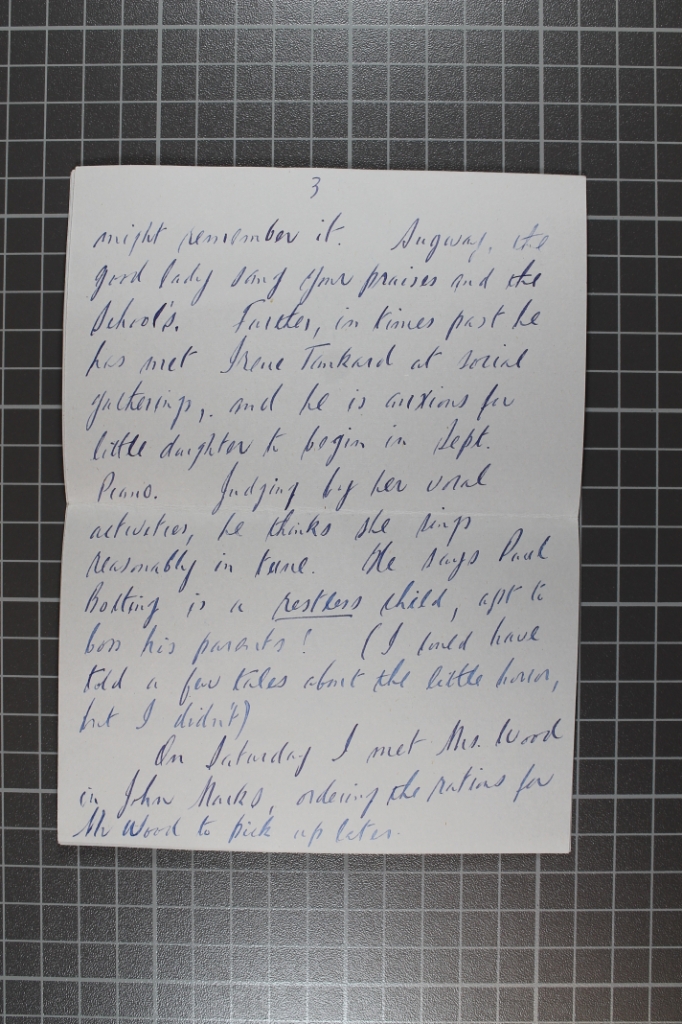 3
might remember it. Anyway, the
good lady sang your praises and the
School's. Further, in times past he
has met Irene Tankard at social
gatherings, and he is anxious for
little daughter to begin in Sept.
Piano. Judging by her vocal
activities, he thinks she sings
reasonably in tune. He says Paul
Botting is a restless child, apt to
boss his parents! (I could have
told a few tales about the little horror,
but I didn't)
On Saturday I met Mrs. Wood
in John Marks, ordering the rations for
Mr Wood to pick up later.